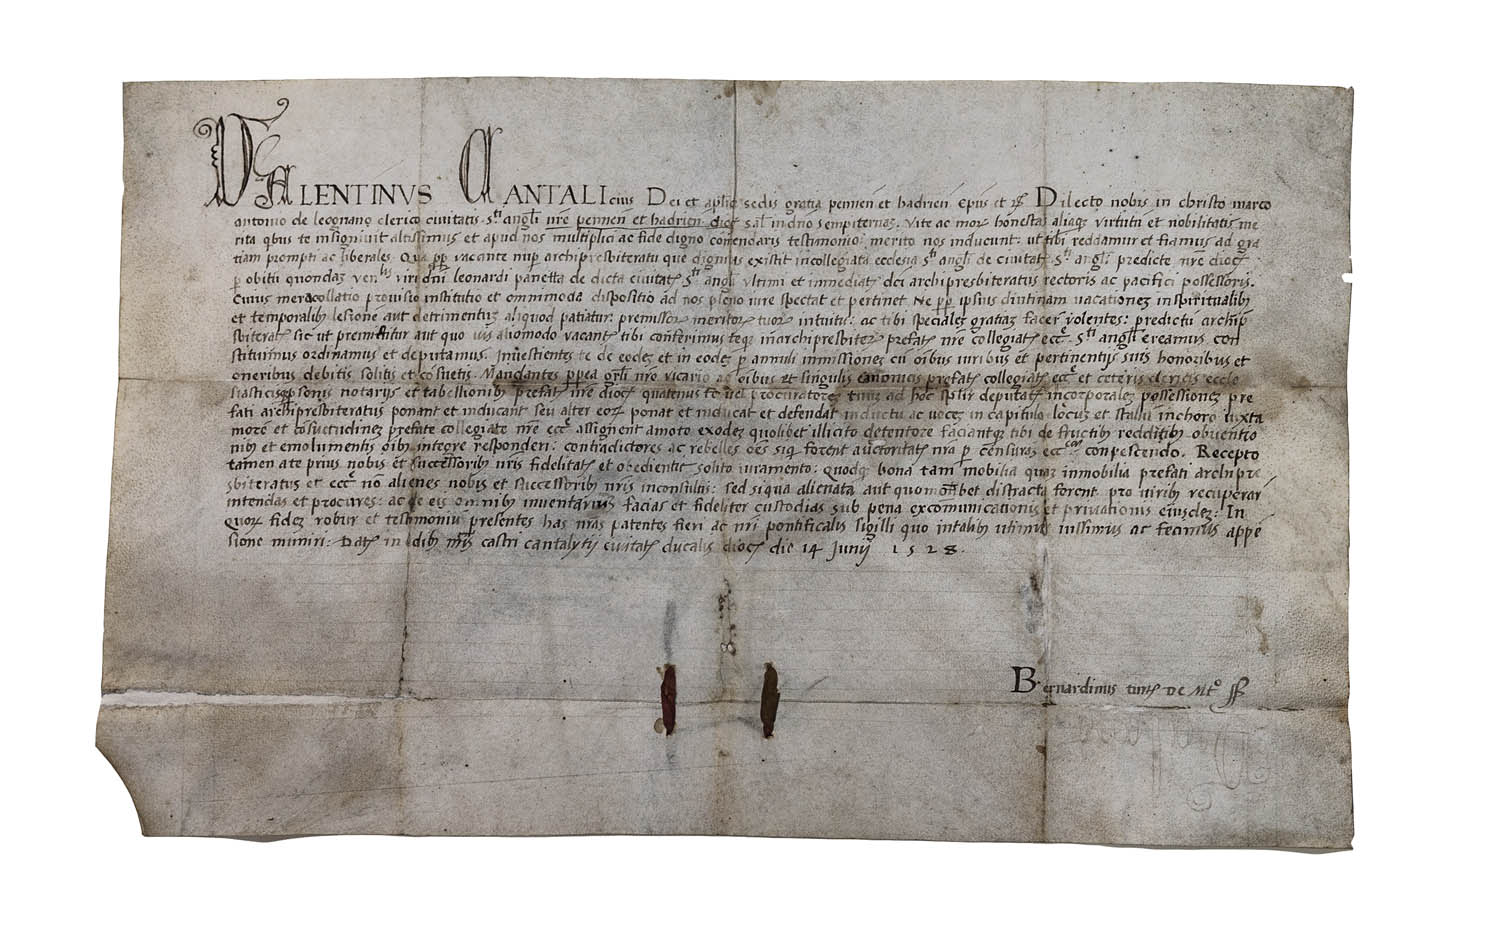 VALENTINVS CANTALIcius Dei et aplice sedis gratia pennen et hadrien Epus et Dilecto nobis in christo marco
antonio de legonano clerico civitatis sti angli nre pennen et hadrien dioc sal in dno sempiternaz. Vite ac mor honestas aliaqz virtutu et nobilitatis me
rita qbus te insignivit altissimus et apud nos multiplici ac fide digno comendaris testimonio: merito nos inducunt: ut tibi reddamur et fiamus ad gra
tiam prompti ac liberales. Qua pp vacante nup archipresbiteratu que dignitas existit in collegiata ecclesia sti angli de civitate sti angli predicte nre dioc
p obitu quondaz ven lis viri dni leonardi panella de dicta civitate sti angli ultimi et immediat dci archipresbiteratus rectoris ac pacifici possessoris.
Cuius mera collatio provisio institutio et omnimoda dispositio ad nos pleno iure spectat et pertinet. Ne pp ipsius diutinam vacationez in spiritualibz
et temporalibz lesione aut detrimentuz aliquod patiatur: premissor meritor tuor intuitu: ac tibi speciales gratiaz facer volentes: predictu archip
sbiterat sic ut premittitur aut quo vis aliomodo vacante tibi conferimus teqz in archipresbiter prefat nre collegiat ecce sti angli creamus con
stituimus ordinamus et deputamus. Investientes te de eodez et in eodez p annuli immissionez cu oibus iuribus et pertinentijs suis honoribus et
oneribus debitis solitis et cosuetis. Mandantes ppea grli nre vicario ac oibus et singulis canonicis prefat collegiat ecce et ceteris clericis eccle
siasticisqz psonis notarijs et tabellionibz prefat nre dioc quatenus te vel procuratorez tuuz ad hoc spalir deputat in corporalez possessionez pre
fati archipresbiteratus ponant et inducant seu alter eor ponat et inducat et defendat inductu ac vocez in capitulo locuz et stallu in choro iuxta
more et cosuetudinez prefate collegiate nre ecce assignent amoto exodez quolibet illicito detentore faciantqz tibi de fructibz redditibz obventio
nibz et emolumentis oibz integre responderi: contradictores ac rebelles oes siq forent auctoritate nra p censuras eccas conpescendo. Recepto
tamen a te prius nobis et successoribz nris fidelitat et obedientie solito iuramento: quodqz bona tam mobilia quaz inmobilia prefati archipre
sbiteratus et ecce no alienes nobis et successoribz nris inconsultis: sed siqua alienata aut quomolibet distracta forent pro viribz recuperar
intendas et procures: ac de eis omnibz inventariuz facias et fideliter custodias sub pena excomunicationis et privationis eiusdez: In
quor fidez robur et testimoniu presentes has nras patentes fieri ac nri pontificalis sigilli quo in talibz utimur iussimus ac fecimus appe
sione muniri: Dat in edibz nris castri cantalytij civitat ducalis dioc die 14 Junij 1528.
Bernardinus